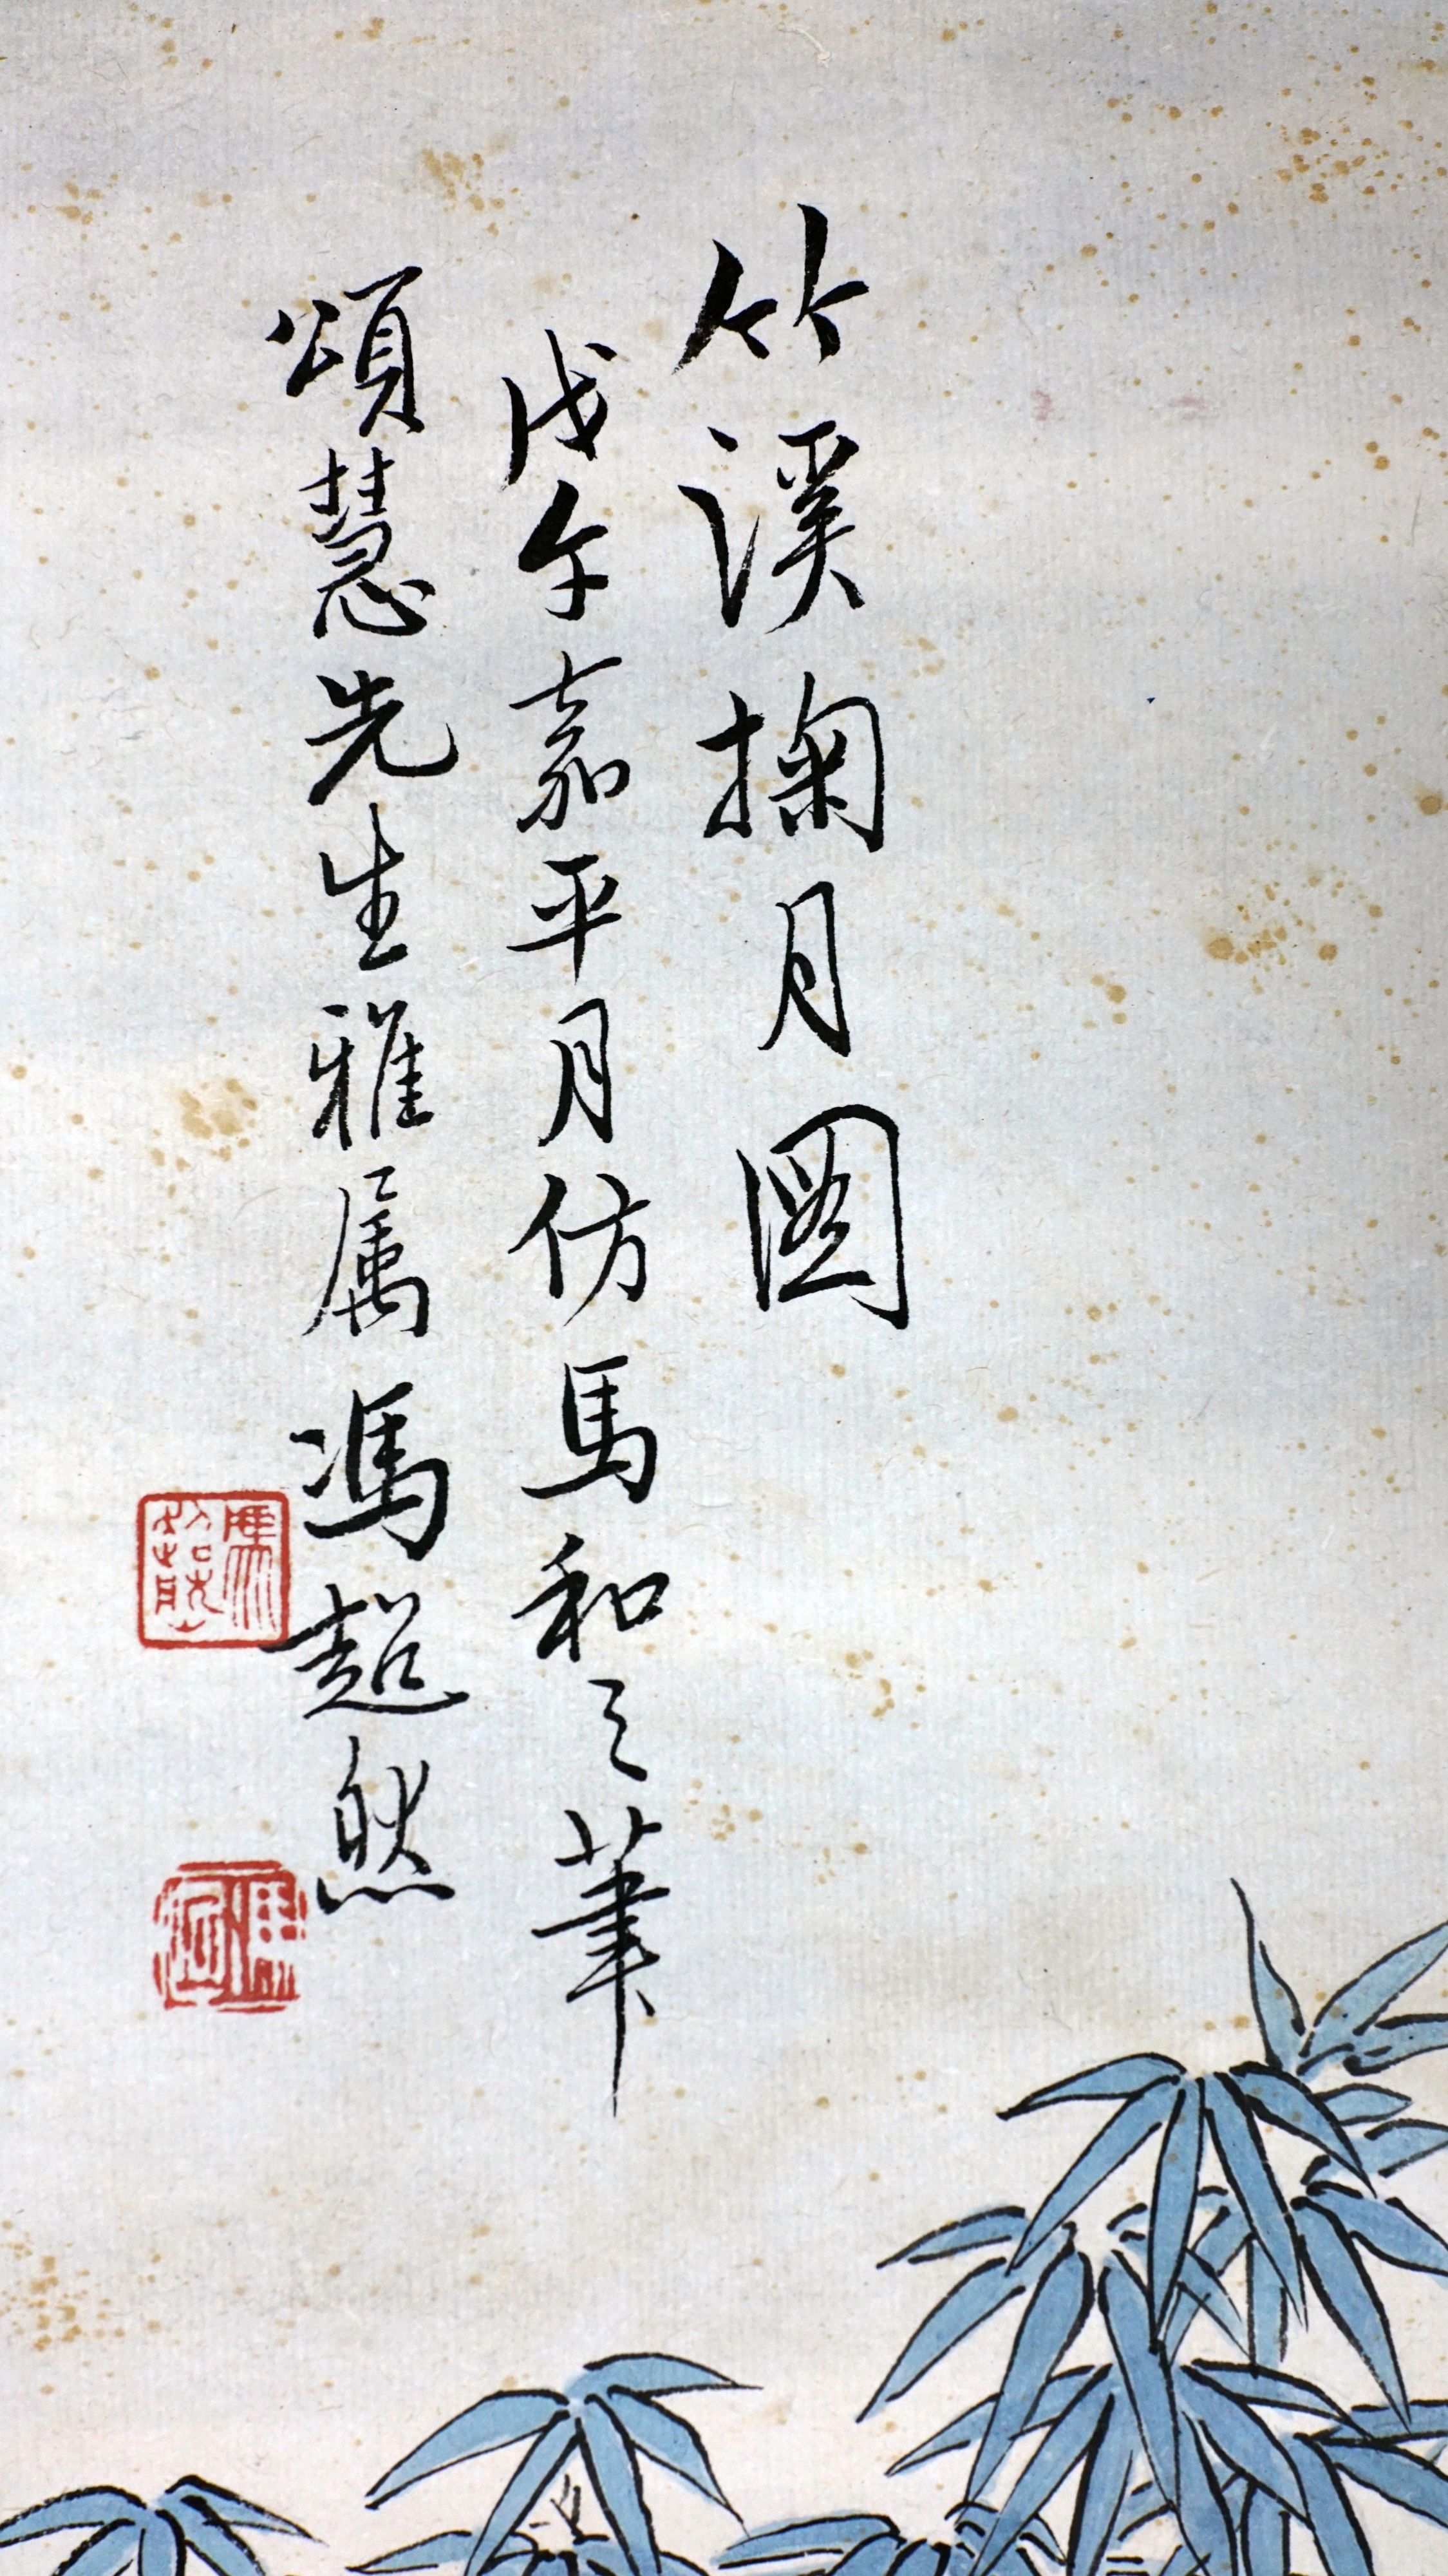 竹溪掬月圖
戊午嘉平月仿馬和之筆
頌慧先生雅属馮超然